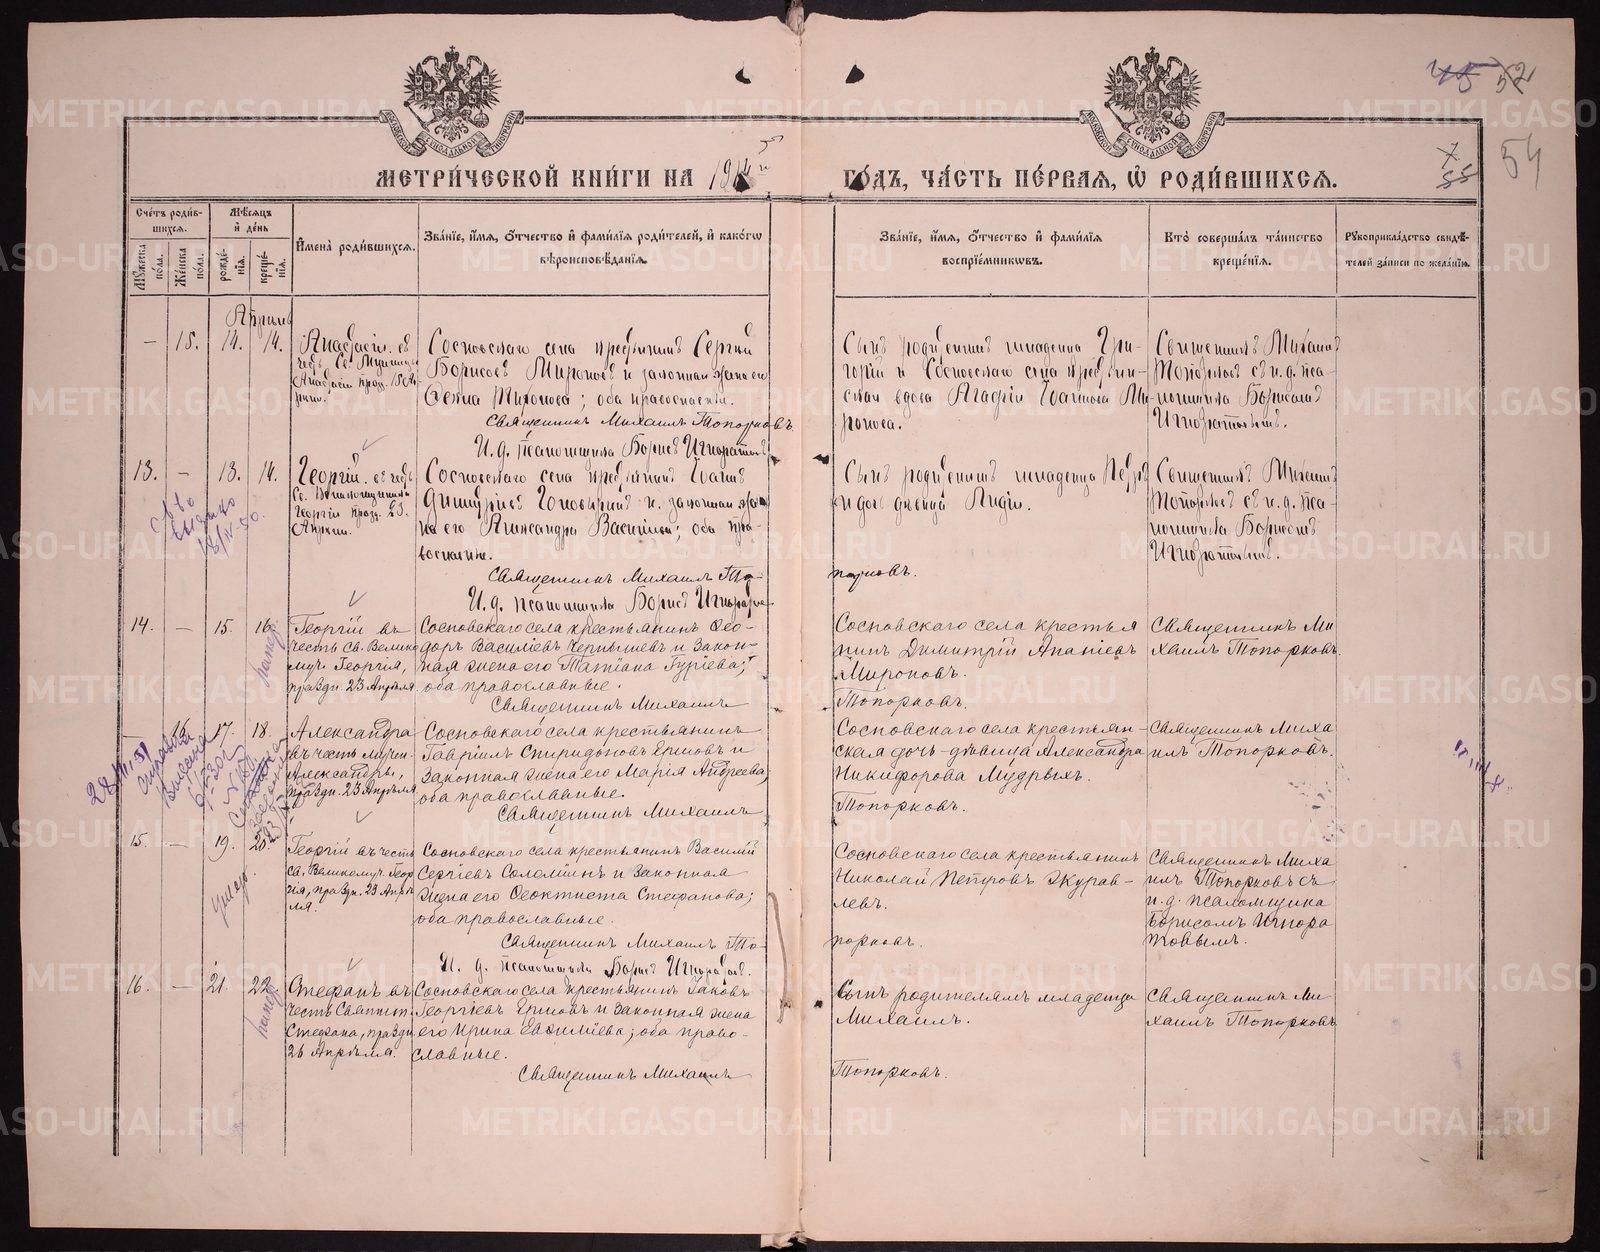 45 52
54
МЕТРИ́ЧЕСКОЙ КНИ́ГИ НА 191
ГО́ДЪ, ЧА́СТЬ ПЕ́РВАЯ, Ѡ҆ РОДИ́ВШИХСЯ.
Сче́тъ роди́в-
шихся.
Мꙋ́жеска по́ла.
Же́нска по́ла.
Мѣ́сяцъ и҆ де́нь
рожде́-нїя.
креще́-нїя.
И҆мена̀ роди́вшихся.
Зва́нїе, и҆́мя, ѻ҆́тчество и҆ фами́лїя роди́телей, и҆ како́гѡ
вѣроисповѣ́данїя.
Зва́нїе, и҆́мя, ѻ҆́тчество и҆ фами́лїя
воспрїе́мникѡвъ.
Кто̀ соверша́лъ та́инство
креще́нїя.
Рꙋкоприкла́дство свидѣ́-
телей за́писи по жела́нїю.
Апрѣль
— 15. 14. 14.
Анастасія. въ
честь Св. Мученицы
Анастасіи празд. 15 Ап-
рѣля.
Сосновскаго села крестьянинъ Сергій
Борисовъ Мироновъ и законная жена его
Миронова; оба православные.
Священникъ Михаилъ Топорковъ.
И. д. псаломщика Борисъ
Сынъ родителей младенца Гри-
горій и Сосновскаго села крестьян-
ская вдова Агафія Иванова Ми-
ронова.
Священникъ Михаилъ
Топорковъ съ и. д. пса-
ломщика Борисомъ
13. — 13. 14.
Георгій. въ честь
Св. Великомученика
Георгія празд. 23.
Апрѣля.
Сосновскаго села крестьянинъ Іоаннъ
Димитріевъ и законная же-
на его Александра Васильева; оба пра-
вославные.
Священникъ Михаилъ То-
порковъ.
И. д. псаломщика Борисъ
Сынъ родителей младенца Петръ
и дочь дѣвица Лидія.
Священникъ Михаилъ
Топорковъ съ и. д. пса-
ломщика Борисомъ
14. — 15. 16.
Георгій въ
честь Св. Велико
муч. Георгія,
празд. 23 Апрѣля
Сосновскаго села крестьянинъ Ѳео-
доръ Василіевъ Чернышевъ и закон-
ная жена его Татіана Гуріева;
оба православные.
Священникъ Михаилъ
Топорковъ.
Сосновскаго села крестья
нинъ Димитрій Ананіевъ
Мироновъ.
Священникъ Ми
хаилъ Топорковъ.
— 16 17. 18.
Александра
въ честь мучен.
Александры,
празд. 23 Апрѣля
Сосновскаго села крестьянинъ
Гавріилъ Спиридоновъ Ершовъ и
законная жена его Марія Андреева;
оба православные.
Священникъ Михаилъ
Топорковъ.
Сосновскаго села крестьян-
ская дочь-дѣвица Александра
Никифорова Мудрыхъ.
Священникъ Миха
илъ Топорковъ.
15. — 19. 20.
Георгій въ честь
Св. Великомуч. Геор
гія, празд. 23 Апрѣ
ля.
Сосновскаго села крестьянинъ Василій
Сергіевъ Соломеинъ и законная
жена его Ѳеоктиста Стефанова;
оба православные.
Священникъ Михаилъ То-
порковъ.
И. д. псаломщика Борисъ
Сосновскаго села крестьянинъ
Николай Петровъ Журав-
левъ.
Священникъ Миха
илъ Топорковъ съ
и. д. псаломщика
Борисомъ
16. — 21. 22.
Стефанъ въ
честь Святит.
Стефана, празд.
26 Апрѣля.
Сосновскаго села крестьянинъ Іаковъ
Георгіевъ Ершовъ и законная жена
его Ирина Василіева; оба право-
славные.
Священникъ Михаилъ
Топорковъ.
Сынъ родителямъ младенца
Михаилъ.
Священникъ Ми
хаилъ Топорковъ
METRIKI.GASO-URAL.RU